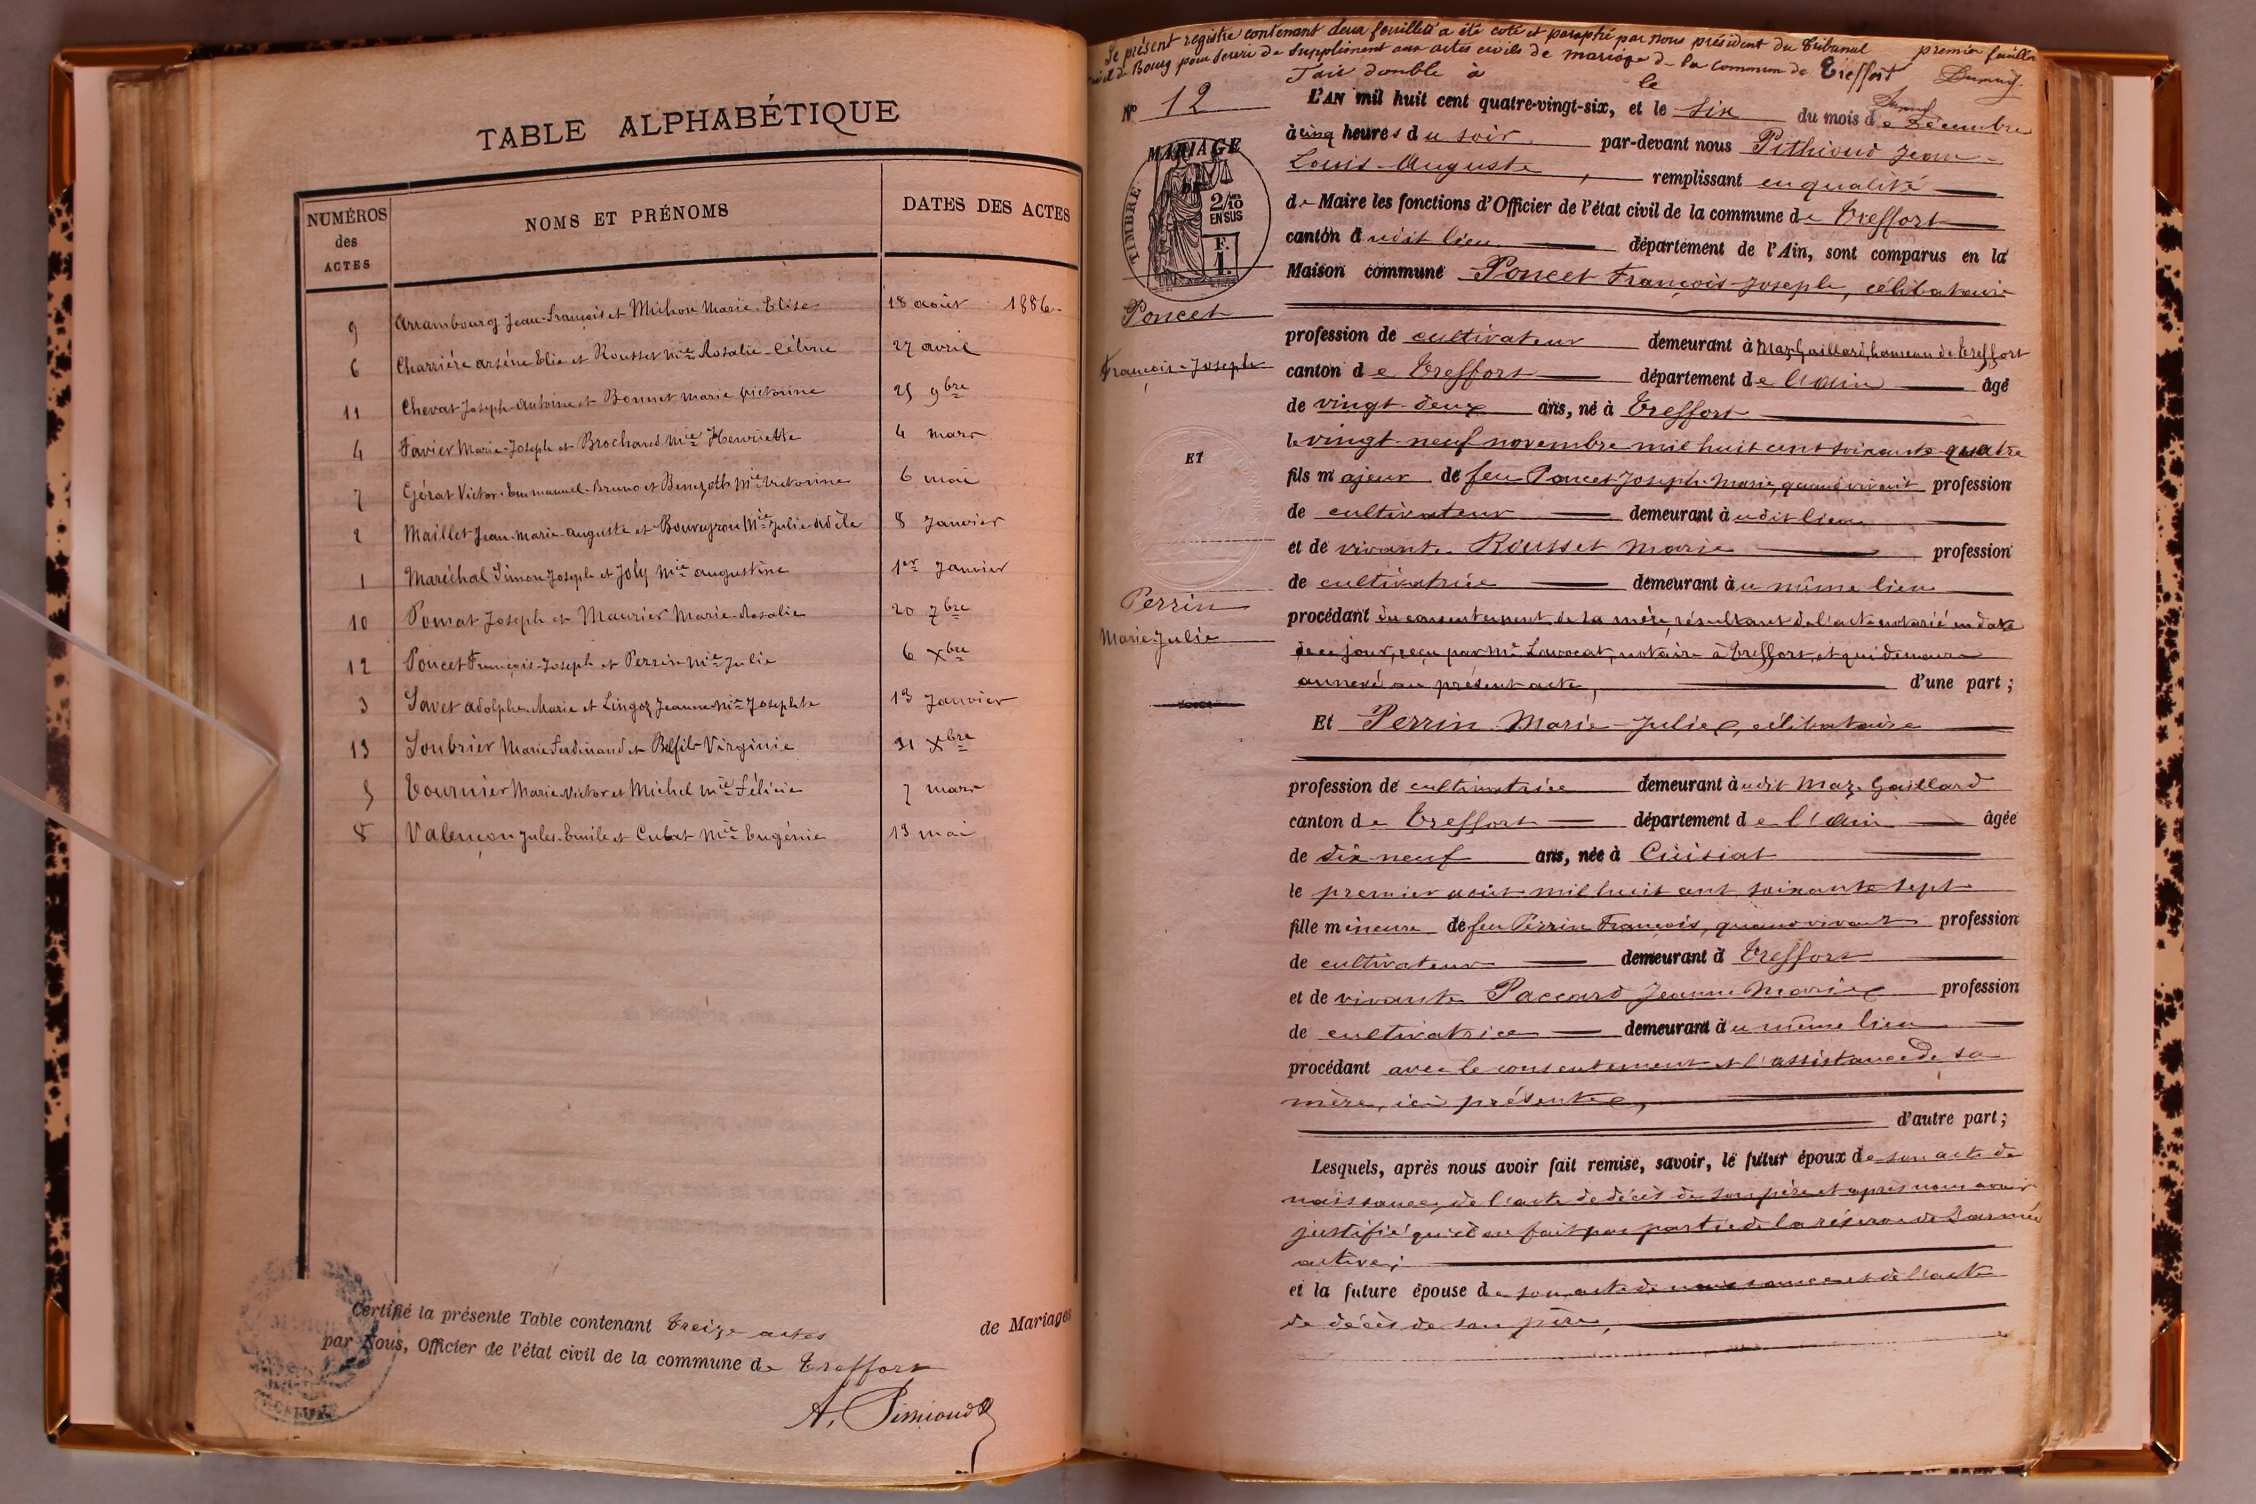 TABLE ALPHABÉTIQUE
NUMÉROS des ACTES
NOMS ET PRÉNOMS
DATES DES ACTES
9 Arrambourg Jean-François et Michon Marie-Elise 18 août 1886
6 Charrière arsène Elie et Rousset Mie Rosalie-Céline 27 avril
11 Chevat Joseph-Antoine et Bonnet Marie Victorine 25 9bre
4 Favier Marie-Joseph et Brochand Mie Henriette 4 mars
7 Gérat Victor-Emmanuel-Bruno et Mie Victorine 6 mai
2 Maillet Jean-Marie-Auguste et Bouveyron Mie Julie Adèle 8 Janvier
1 Maréchal Simon Joseph et Joly Mie augustine 1er Janvier
10 Pomat Joseph et Maurier Marie-Rosalie 20 7bre
12 Poncet François-Joseph et Perrin Mie Julie 6 Xbre
3 Savet adolphe-Marie et Lingoz Jeanne-Mie Josephte 13 Janvier
13 Soubrier Marie Ferdinand et Belfils Virginie 31 Xbre
5 Tournier Marie-Victor et Michel Mie Félicie 7 mars
8 Valençon Jules-Emile et Cubat Mie Eugénie 13 mai
Certifié la présente Table contenant treize actes de Mariages
par Nous, Officier de l'état civil de la commune de Treffort
A. Pithioud
Le présent registre contenant deux feuillets a été coté et paraphé par nous président du Tribunal premier feuillet
civil de Bourg pour servir de supplément aux actes civils de mariage de la commune de Treffort
Fait double à le
No 12
MARIAGE
TIMBRE
2/10 EN SUS
F. 1.
L'AN mil huit cent quatre-vingt-six, et le six du mois de Décembre
à cinq heures du soir par-devant nous Pithioud Jean-
Louis-Auguste, remplissant en qualité
de Maire les fonctions d'Officier de l'état civil de la commune de Treffort
canton dudit lieu département de l'Ain, sont comparus en la
Maison commune Poncet François-Joseph, célibataire
Poncet
François-Joseph
profession de cultivateur demeurant à Maz Gaillard, hameau de Treffort
canton de Treffort département de l'Ain âgé
de vingt-deux ans, né à Treffort
le vingt-neuf novembre mil huit cent soixante-quatre
ET
fils majeur de feu Poncet Joseph-Marie, quand vivait profession
de cultivateur demeurant audit lieu
et de vivante Rousset Marie profession
de cultivatrice demeurant au même lieu
Perrin
Marie-Julie
procédant du consentement de la mère, résultant de l'acte notarié en date
de ce jour, reçu par Me Lavocat, notaire à Treffort, et qui demeure
annexé au présent acte, d'une part;
Et Perrin Marie-Julie, célibataire
profession de cultivatrice demeurant audit Maz-Gaillard
canton de Treffort département de l'Ain âgée
de dix-neuf ans, née à Cuisiat
le premier août mil huit cent soixante sept
fille mineure de feu Perrin François, quand vivait profession
de cultivateur demeurant à Treffort
et de vivante Paccard Jeanne Marie profession
de cultivatrice demeurant au même lieu
procédant avec le consentement et l'assistance de sa
mère, ici présente,
d'autre part;
Lesquels, après nous avoir fait remise, savoir, le futur époux de son acte de
naissance, de l'acte de décès de son père et après nous avoir
justifié qu'il ne fait pas partie de la réserve de l'armée
active;
et la future épouse de son acte de naissance et de l'acte
de décès de son père,